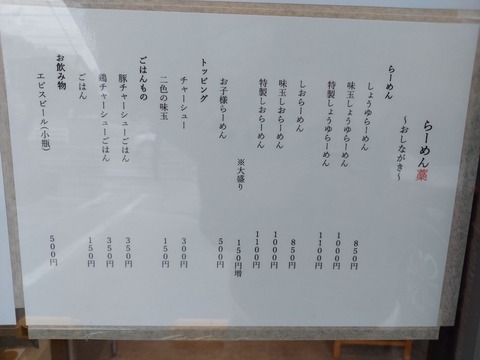 らーめん藁
～おしながき～
らーめん
しょうゆらーめん 850円
味玉しょうゆらーめん 1000円
特製しょうゆらーめん 1100円
しおらーめん 850円
味玉しおらーめん 1000円
特製しおらーめん 1100円
※大盛り 150円増
お子様らーめん 500円
トッピング
チャーシュー 300円
二色の味玉 150円
ごはんもの
豚チャーシューごはん 350円
鶏チャーシューごはん 350円
ごはん 150円
お飲み物
エビスビール(小瓶) 500円